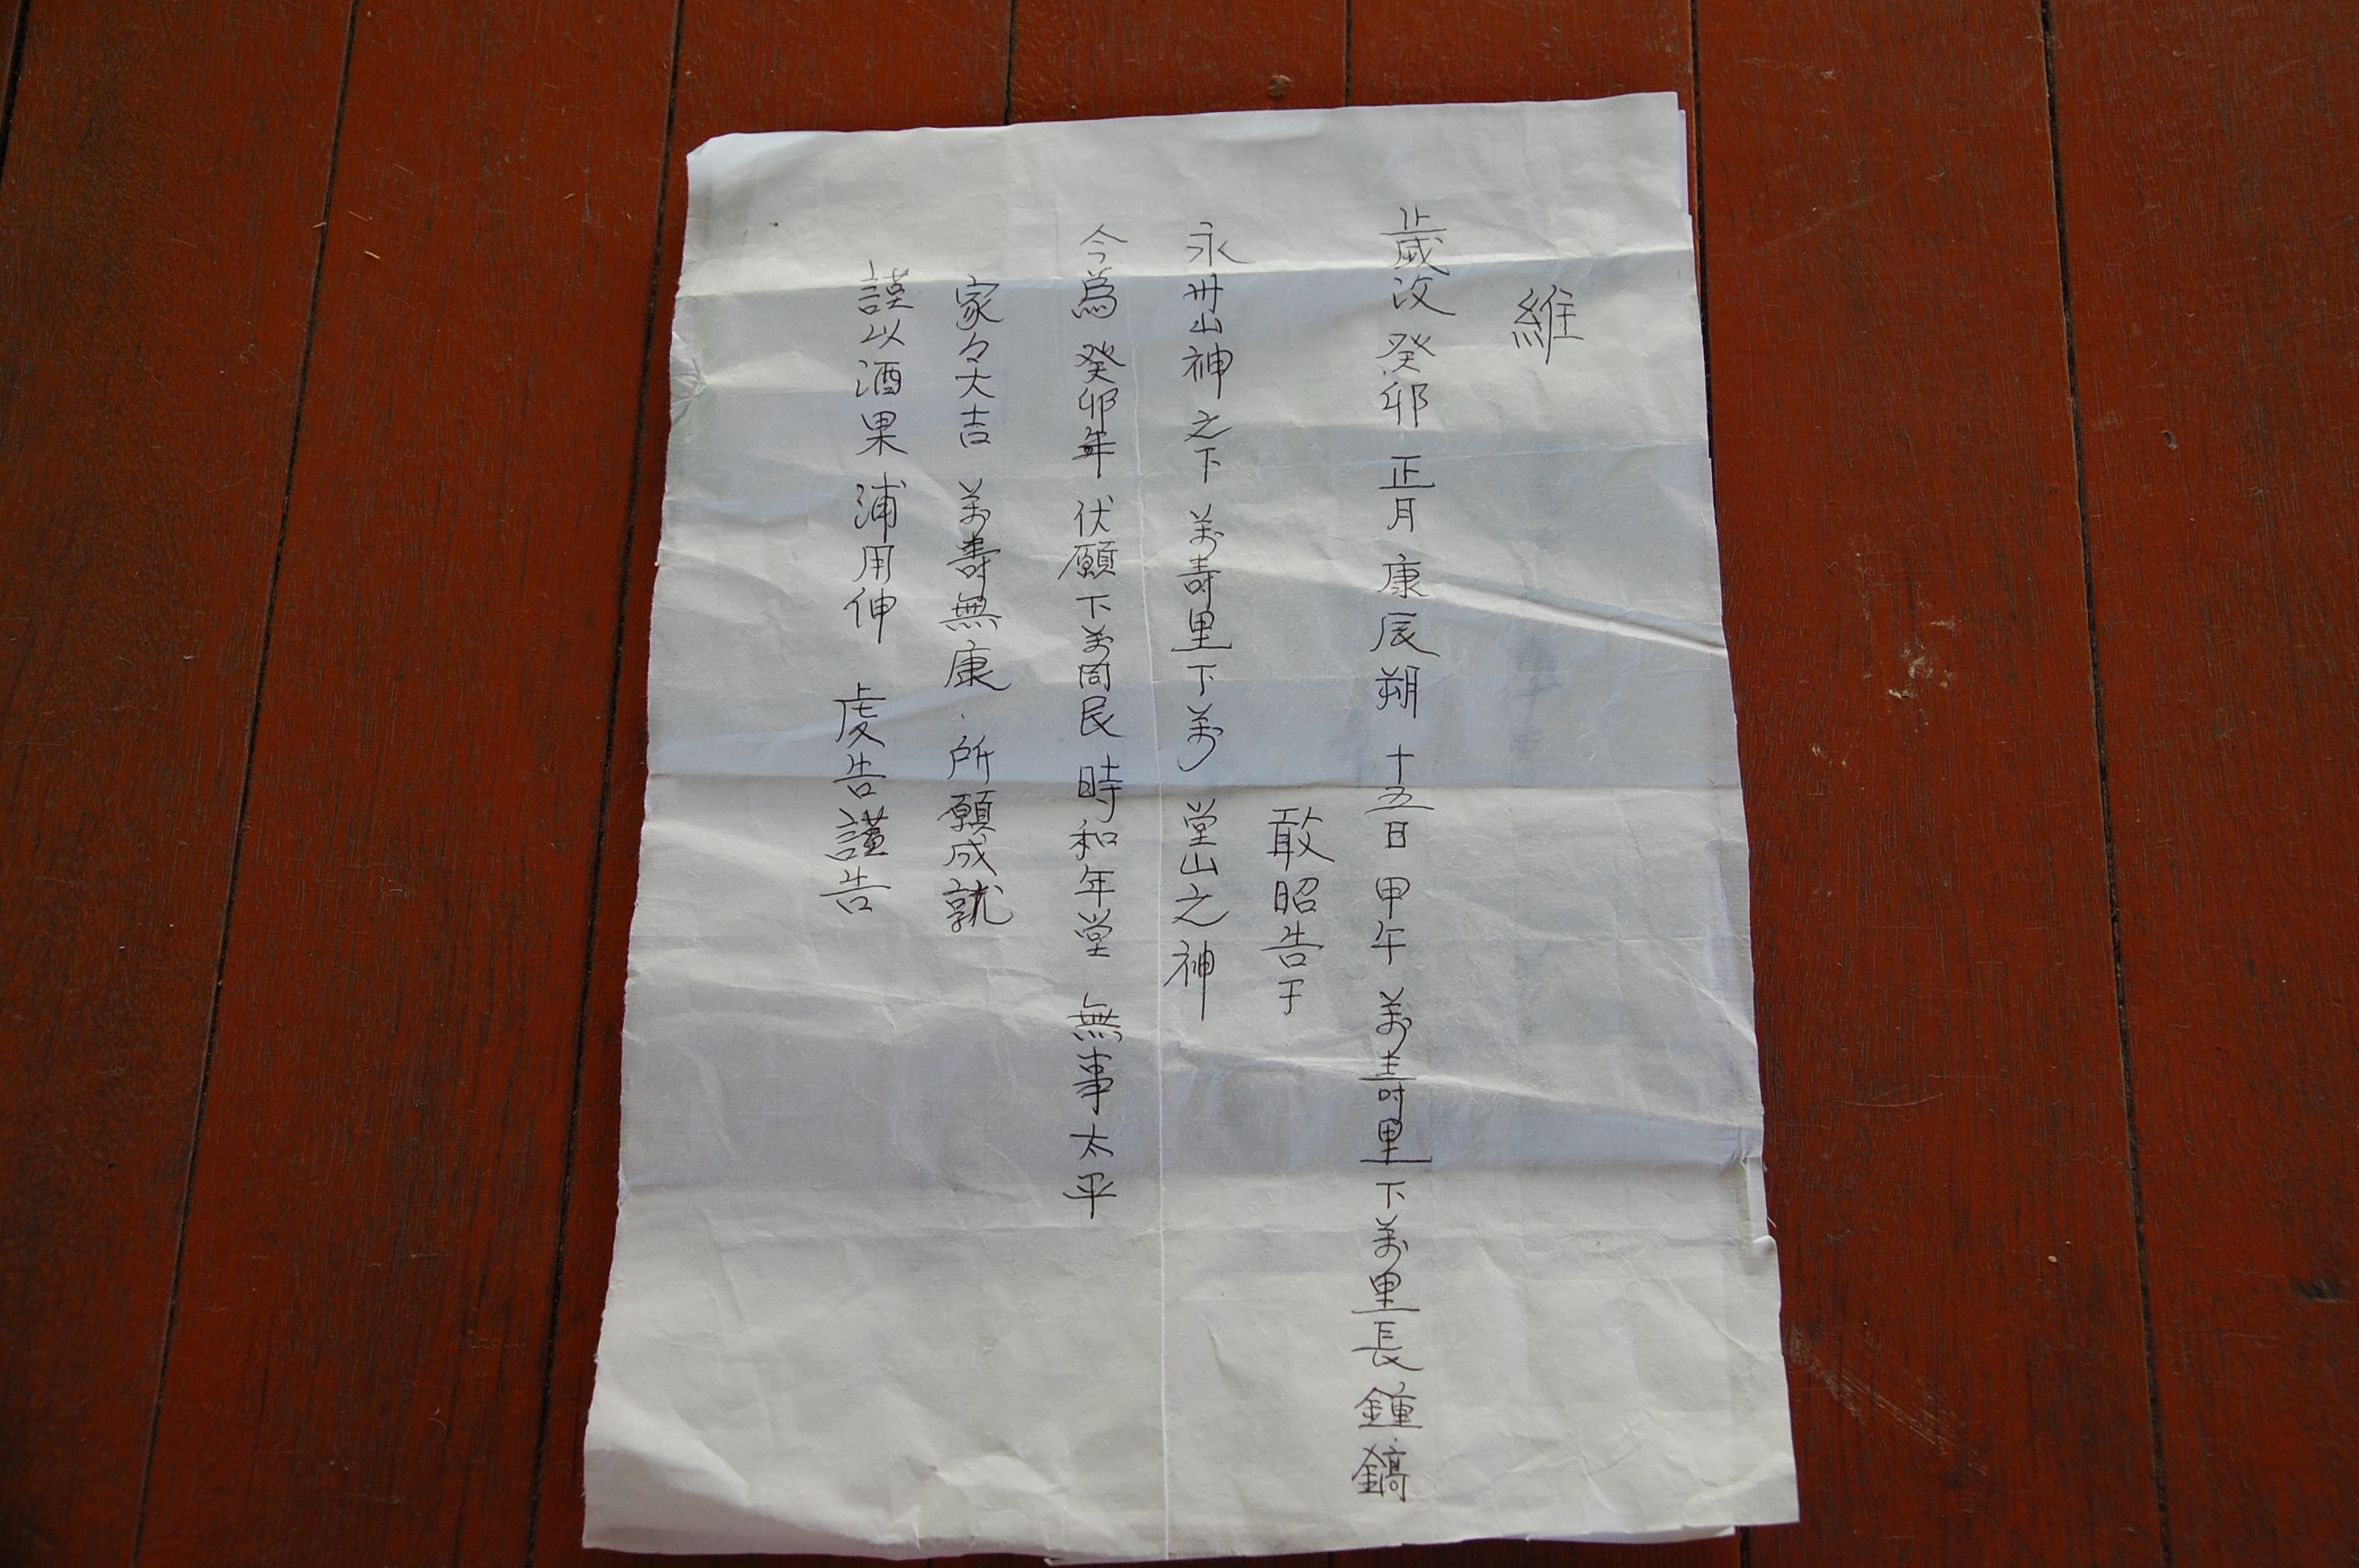 維
歲次 癸卯 正月 康辰 朔 十五日 甲午 萬壽里 下萬里長 鍾鎬
敢昭告于
永世山神之下 萬壽里下萬 堂山之神
今為 癸卯年 伏願 下萬同民 時和年堂 無事太平
家々大吉 萬壽無康 所願成就
謹以酒果 浦用伸 虔告謹告